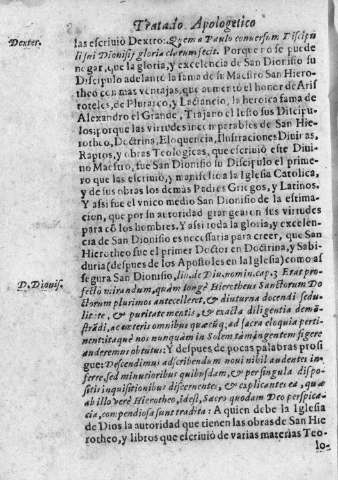 Tratado Apologetico
Dexter.
las escriuiò Dextro: Quem a Paulo conuersum Discipu
li sui Dionisij gloria clarum fecit. Porque no se puede
negar, que la gloria, y excelencia de San Dionisio su
Discipulo adelantò la fama de su Maestro San Hiero-
theo con mas ventajas, que aumentò el honor de Aris
toteles, de Plutarco, y Lactancio, la heroica fama de
Alexandro el Grande, Trajano
Discipu-
los; porque las virtudes incomparables de San Hie-
rotheo, Doctrina, Eloquencia, Ilustraciones Diuinas,
Raptos, y obras Teologicas, que escriuiò este Diui-
no Maestro, fue San Dionisio su Discipulo el prime-
ro que las escriuiò, y manifestò a la Iglesia Catolica,
y de sus obras los demàs Padres Griegos, y Latinos.
Y assi fue el vnico medio San Dionisio de la estima-
cion, que por su autoridad grangearon sus virtudes
para cõ los hombres. Y assi toda la gloria, y excelen-
cia de San Dionisio es necessaria para creer, que San
Hierotheo fue el primer Doctor en Doctrina, y Sabi-
duria (despues de los Apostoles en la Iglesia) como al
D. Dionis.
segura San Dionisio, lib. de Diu. nomin. cap. 3. Erat pro-
fecto mirandum, quàm longè Hierotheus Sanctorum Do
ctorum plurimos antecelleret, & diuturna docendi sedu-
litate, & puritate mentis, & exacta diligentia demõ-
strãdi, ac cæteris omnibus quæcũq; ad sacra eloquia perti-
nent: itaquè nos nunquam in Solem tam ingentem figere
auderemus obtutus: Y despues de pocas palabras prosi
gue: Descendimus ad scribendum nonnihil audentes in-
ferre, sed minutioribus quibusdam, & per singula dispo-
sitis inquisitionibus discernentes, & explicantes ea, quæ
ab illo verè Hierotheo, idest, Sacro quodam Deo perspica-
cia, compendiosa sunt tradita: A quien debe la Iglesia
de Dios la autoridad que tienen las obras de San Hie
rotheo, y libros que escriuiò de varias materias Teo-
lo-